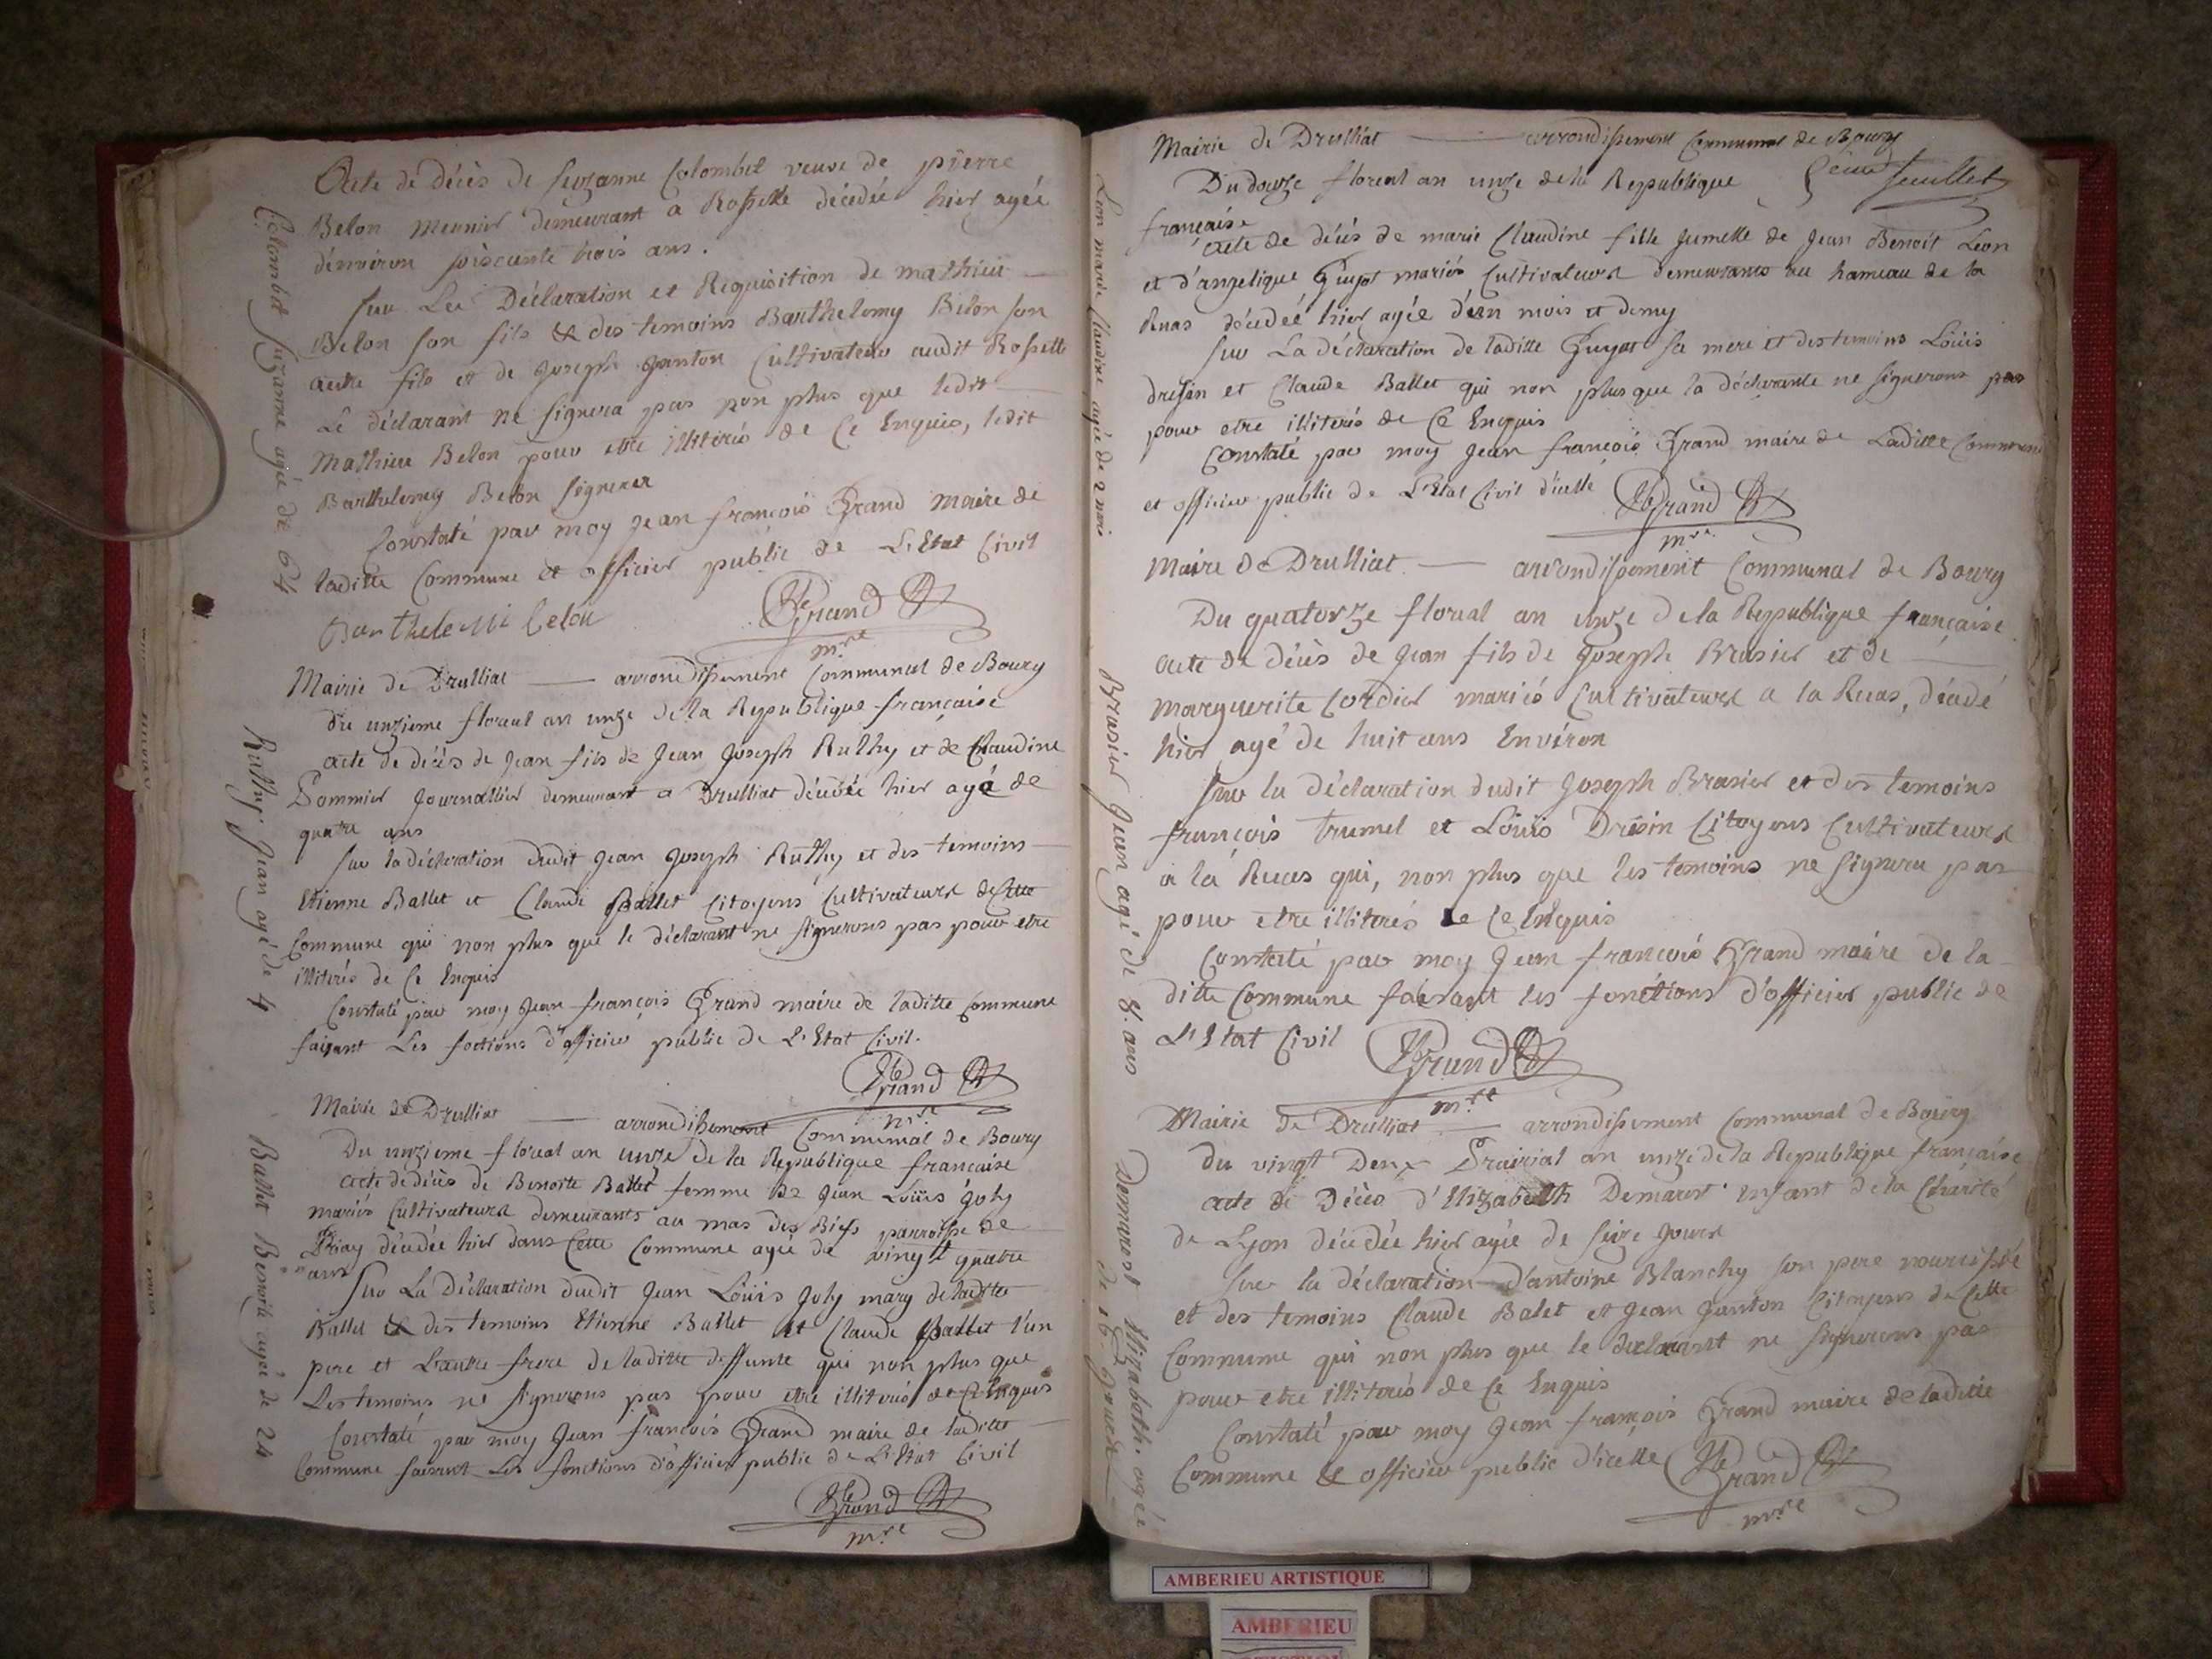 Acte de décès de Suzanne Colombet veuve de pierre
Belon meunier demeurant a Rossette décédée hier agée
d'environ soiscante trois ans.
Sur La Déclaration et Requisition de mathieu
Belon son fils & des temoins Barthelemy Belon son
autre fils et de Joseph Janton Cultivateur audit Rossette
Le déclarant ne signera pas non plus que ledit
Mathieu Belon pour etre illiterés de Ce Enquis, ledit
Barthelemy Belon signera
Constaté par moy Jean françois Grand maire de
laditte Commune et officier public de L'Etat Civil
Barthelemi belon
Grand
m.re
Colombet Suzanne agée de 64
Mairie de Drulliat — arrondissement Communal de Bourg
du unzieme floreal an unze de la Republique française
acte de décès de Jean fils de Jean Joseph Ruthy et de Claudine
Pommier Journallier demeurant a Drulliat décédée hier agé de
quatre ans
Sur la déclaration dudit Jean Joseph Ruthy et des temoins
Etienne Ballet et Claude Ballet Citoyens Cultivateurs de Cette
Commune qui non plus que le déclarant ne signerons pas pour etre
illiterés de Ce Enquis
Constaté par moy Jean françois Grand maire de laditte Commune
faisant Les foctions d'officier public de L'Etat Civil.
Grand
m.re
Ruthy Jean agé de 4
Mairie de Drulliat — arrondissement Communal de Bourg
Du unzieme floreal an unze de la Republique française
acte de décès de Benoite Ballet femme de Jean Loüis Joly
mariés Cultivateurs demeurants au mas des Biefs parroisse de
Priay décédée hier dans Cette Commune agée de vingt quatre
ans
Sur La Déclaration dudit Jean Loüis Joly mary de laditte
Ballet & des temoins Etienne Ballet et Claude Ballet l'un
pere et L'autre frere de laditte deffunte qui non plus que
Les temoins ne signerons pas pour etre illiterés de Ce Enquis
Constaté par moy Jean françois Grand maire de laditte
Commune faisant Les fonctions d'officier public de L'Etat Civil
Grand
m.re
Ballet Benoite agée de 24
Mairie de Drulliat — arrondissement Communal de Bourg
feuillet
Du douze floreal an unze de la Republique
française
acte de décès de marie Claudine fille Jumelle de Jean Benoit Leon
et d'angelique Guyot mariés Cultivateurs demeurants au hameau de la
Ruas décédée hier agée d'un mois et demy
Sur La déclaration de laditte Guyot sa mere et des temoins Loüis
dresin et Claude Ballet qui non plus que la déclarante ne signerons pas
pour etre illiterés de Ce Enquis
Constaté par moy Jean françois Grand maire de Laditte Commune
et officier public de L'Etat Civil d'icelle
Grand
m.re
Leon marie Claudine agée de 2 mois
Maire de Drulliat — arrondissement Communal de Bourg
Du quatorze floreal an unze de la Republique française
acte de décès de Jean fils de Joseph Brasier et de
marguerite Cordier mariés Cultivateurs a la Ruas, décédé
hier agé de huit ans Environ
Sur la déclaration dudit Joseph Brasier et des temoins
françois trumel et Loüis Dresin Citoyens Cultivateurs
a la Ruas qui, non plus que les temoins ne signera pas
pour etre illiterés de Ce Enquis
Constaté par moy Jean françois Grand maire de la
ditte Commune faisant les fonctions d'officier public de
L'Etat Civil
Grand
m.re
Brasier Jean agé de 8. ans
Mairie de Drulliat — arrondissement Communal de Bourg
du vingt Deux Prairial an unze de la Republique française
acte de Décès d'Elizabetth Demarest Enfant de la Charité
de Lyon décédée hier agée de seize Jours
Sur la déclaration d'antoine Blanchy son pere nourissié
et des temoins Claude Balet et Jean Janton Citoyens de Cette
Commune qui non plus que le declarant ne signerons pas
pour etre illiterés de Ce Enquis
Constaté par moy Jean françois Grand maire de laditte
Commune & officier public d'icelle
Grand
m.re
Demarest Elizabeth. agée
de 16 Jours
AMBERIEU ARTISTIQUE
AMBERIEU